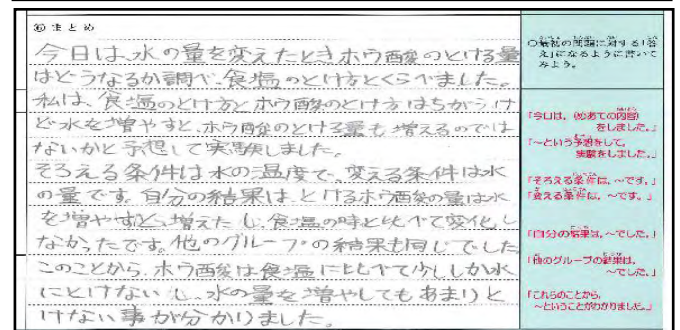 ⑥まとめ
今日は、水の量を変えたときホウ酸のとける量
はどうなるか調べ、食塩のとけ方とくらべました。
私は、食塩のとけ方とホウ酸のとけ方はちがうけ
ど水を増やすと、ホウ酸のとける量も増えるのでは
ないかと予想して実験しました。
そろえる条件は水の温度で、変える条件は水
の量です。自分の結果は、とけるホウ酸の量は水
を増やすと、増えたし、食塩の時と比べて変化し
なかったです。他のグループの結果も同じでした
このことから、ホウ酸は食塩に比べて少ししか水
にとけないし、水の量を増やしてもあまりと
けない事が分かりました。
○最初の問題に対する「答
え」になるように書いて
みよう。
「今日は、(めあての内容)
をしました。」
「～という予想をして、
実験をしました。」
「そろえる条件は、～です。」
「変える条件は、～です。」
「自分の結果は、～でした。」
「他のグループの結果は、
～でした。」
「これらのことから、
～ということがわかりました。」